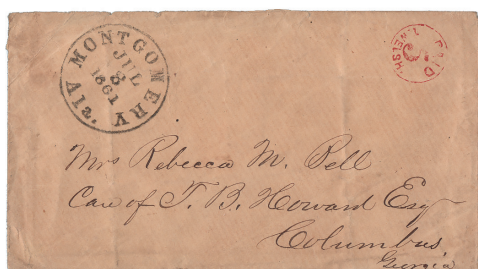 MONTGOMERY Ala.
JUL
8
1861
PAID
5
Mrs Rebecca M. Pell
Care of T. B. Howard Esq
Columbus
Georgia